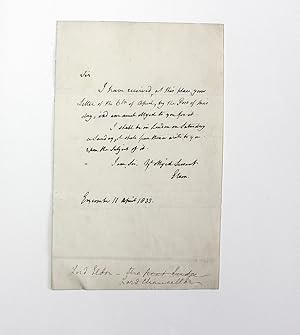 Sir
I have received, at this place, your
Letter of the 6th of April, by the Post of this
day, and am much obliged to you for it.
I shall be in London on Saturday
or Sunday, & shall from thence write to you
upon the Subject of it.
I am Sir Yr Obliged Servant
Eldon
Encombe 11 April 1833.
Lord Eldon - 
Lord Chancellor